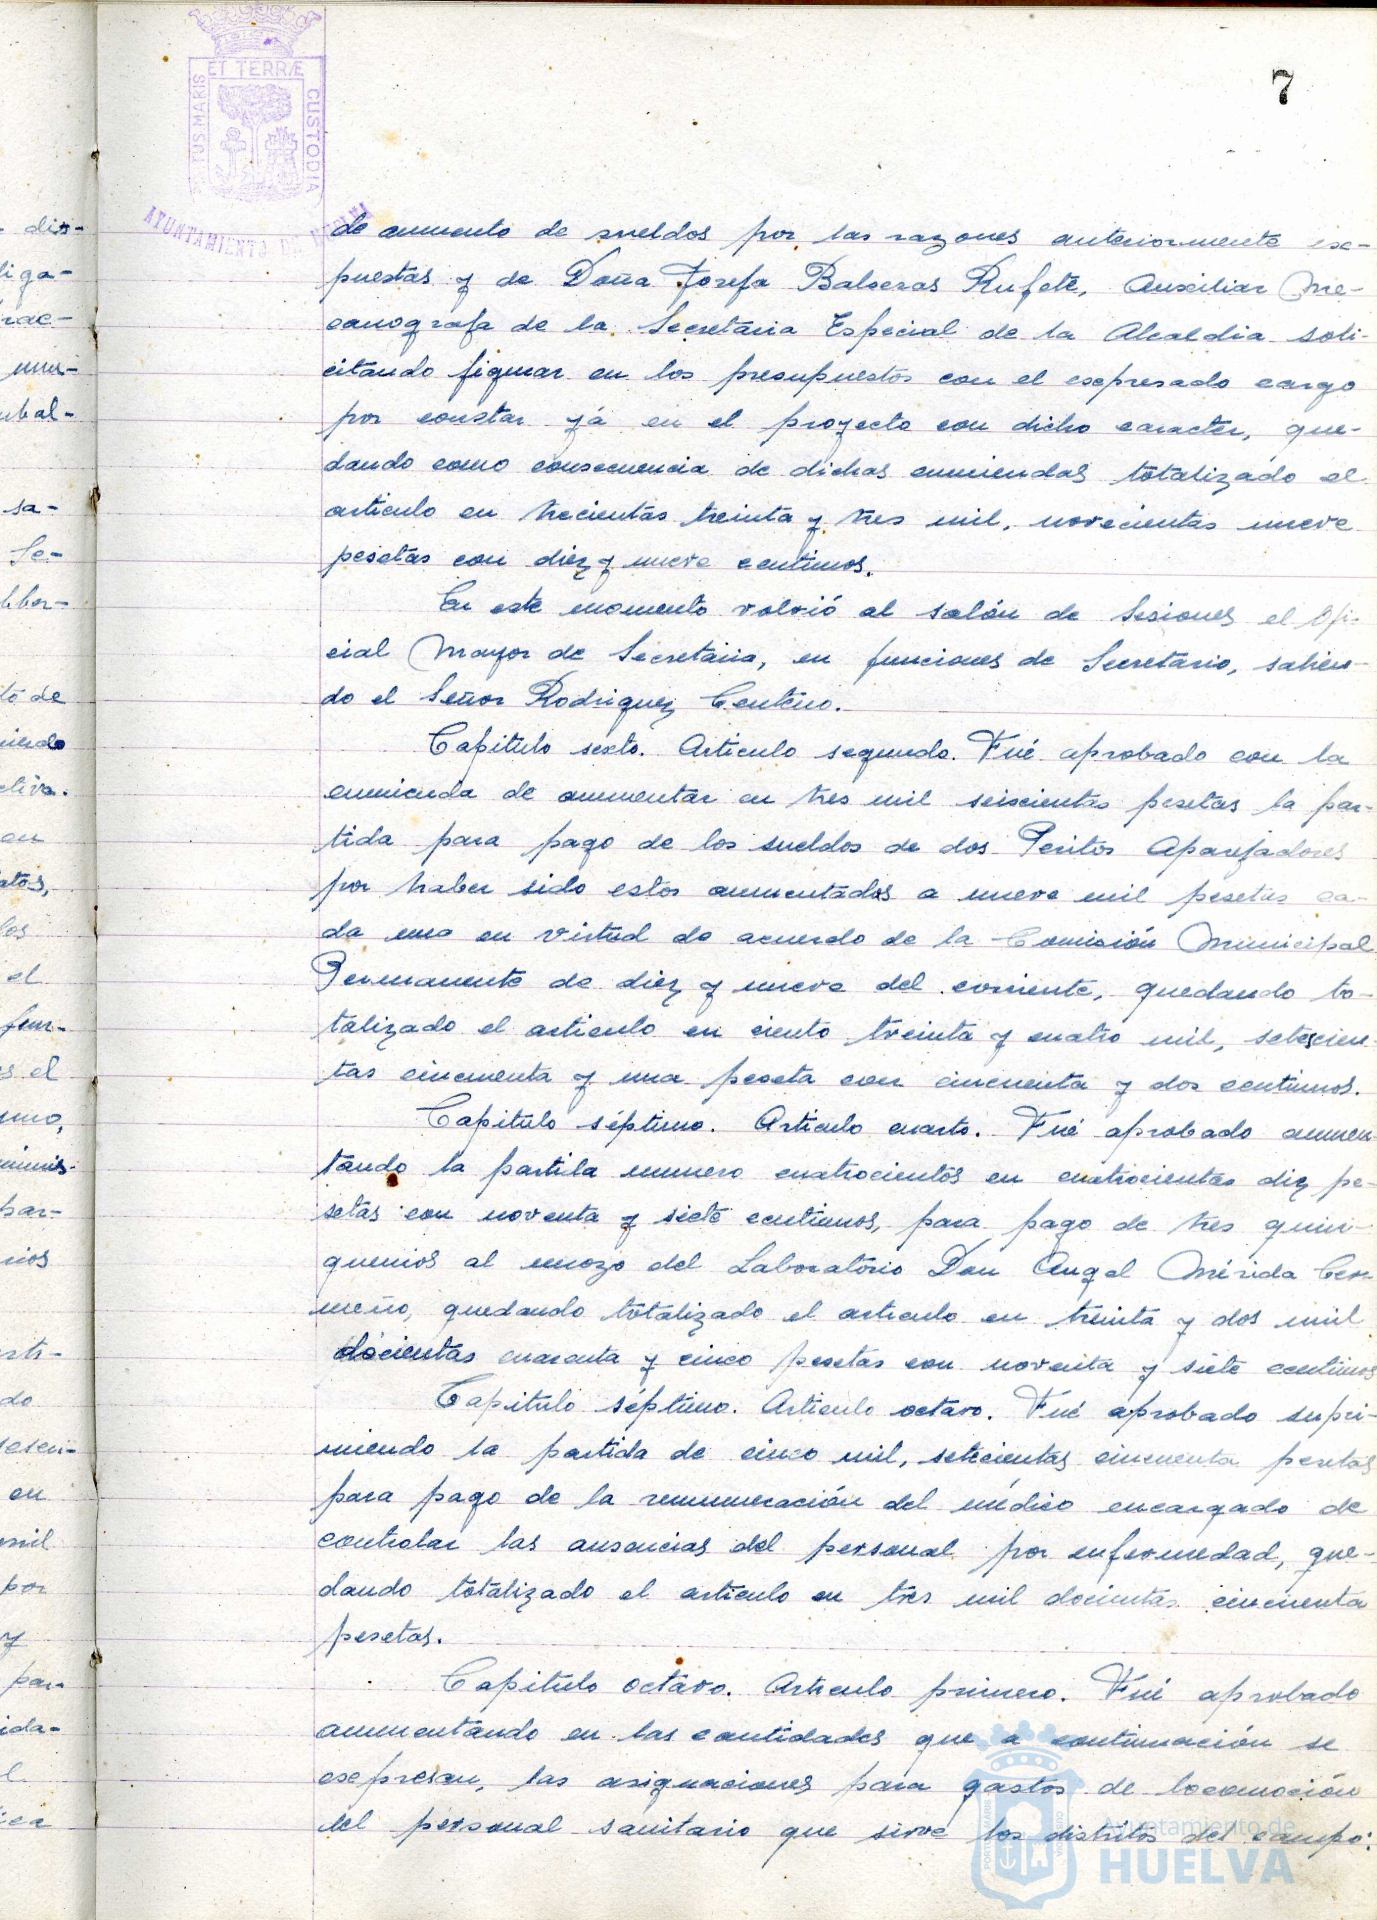 7
PORTUS MARIS ET TERRÆ CUSTODIA
AYUNTAMIENTO DE HUELVA
de aumento de sueldos por las razones anteriormente ex-
puestas y de Doña Josefa Balseras Rufete, Auxiliar Me-
canografa de la Secretaria Especial de la Alcaldia soli-
citando figurar en los presupuestos con el expresado cargo
por constar yá en el proyecto con dicho caracter, que-
dando como consecuencia de dichas enmiendas totalizado el
articulo en trecientas treinta y tres mil, novecientas nueve
pesetas con diez y nueve centimos.
En este momento volvió al salón de Sesiones el Ofi-
cial Mayor de Secretaria, en funciones de Secretario, salien-
do el Señor Rodriguez Centeno.
Capitulo sexto. Articulo segundo. Fué aprobado con la
enmienda de aumentar en tres mil seiscientas pesetas la par-
tida para pago de los sueldos de dos Peritos Aparejadores
por haber sido estos aumentados a nueve mil pesetas ca-
da uno en virtud de acuerdo de la Comisión Municipal
Permanente de diez y nueve del corriente, quedando to-
talizado el articulo en ciento treinta y cuatro mil, setecien-
tas cincuenta y una peseta con cincuenta y dos centimos.
Capitulo séptimo. Articulo cuarto. Fué aprobado aumen-
tando la partida numero cuatrocientos en cuatrocientas diez pe-
setas con noventa y siete centimos, para pago de tres quin-
quenios al mozo del Laboratorio Don Angel Mérida Cer-
meño, quedando totalizado el articulo en treinta y dos mil
docientas cuarenta y cinco pesetas con noventa y siete centimos
Capitulo séptimo. Articulo octavo. Fué aprobado supri-
miendo la partida de cinco mil, setecientas cincuenta pesetas
para pago de la remuneración del médico encargado de
controlar las ausencias del personal por enfermedad, que-
dando totalizado el articulo en tres mil docientas cincuenta
pesetas.
Capitulo octavo. Articulo primero. Fué aprobado
aumentando en las cantidades que a continuación se
expresan, las asignaciones para gastos de locomoción
del personal sanitario que sirve los distritos del campo:
Ayuntamiento de
HUELVA